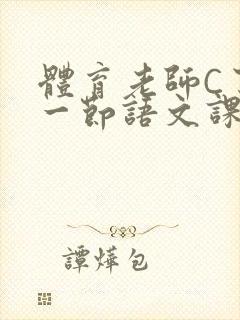 體育老師C
一節語文課
譚燁包